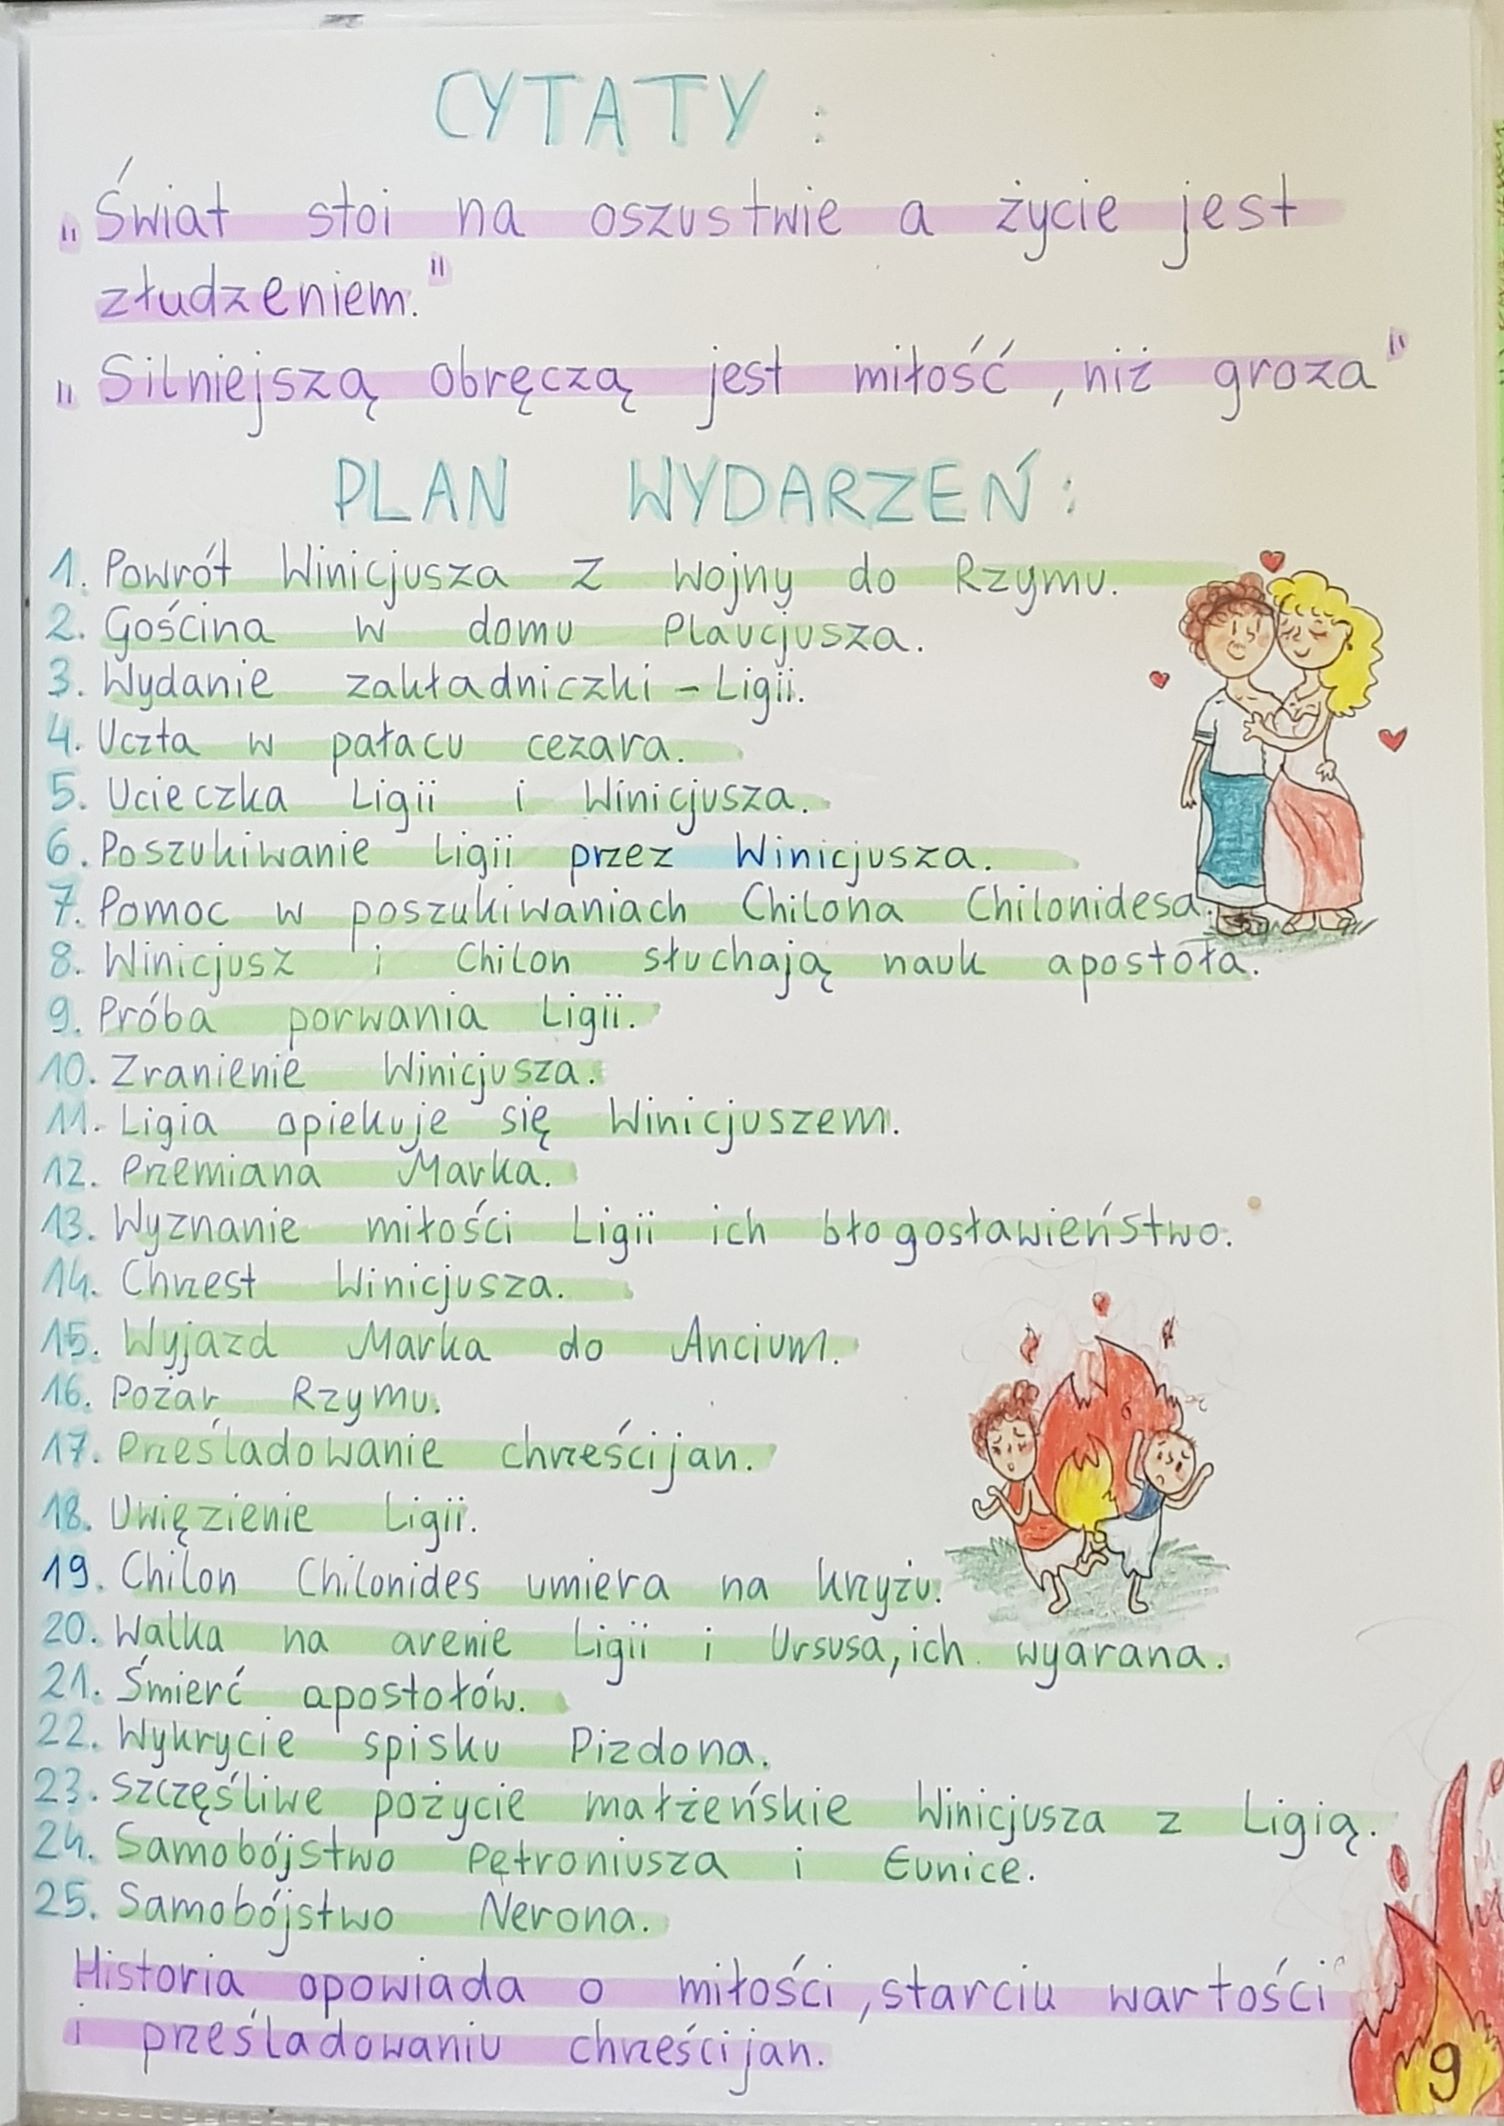 CYTATY:
„Świat stoi na oszustwie a życie jest
złudzeniem."
„Silniejszą obręczą jest miłość, niż groza"
PLAN WYDARZEŃ:
1. Powrót Winicjusza z wojny do Rzymu.
2. Gościna w domu Plaucjusza.
3. Wydanie zakładniczki - Ligii.
4. Uczta w pałacu cezara.
5. Ucieczka Ligii i Winicjusza.
6. Poszukiwanie Ligii przez Winicjusza.
7. Pomoc w poszukiwaniach Chilona Chilonidesa.
8. Winicjusz i Chilon słuchają nauk apostoła.
9. Próba porwania Ligii.
10. Zranienie Winicjusza.
11. Ligia opiekuje się Winicjuszem.
12. Przemiana Marka.
13. Wyznanie miłości Ligii ich błogosławieństwo.
14. Chrzest Winicjusza.
15. Wyjazd Marka do Ancium.
16. Pożar Rzymu.
17. Prześladowanie chrześcijan.
18. Uwięzienie Ligii.
19. Chilon Chilonides umiera na krzyżu.
20. Walka na arenie Ligii i Ursusa, ich wygrana.
21. Śmierć apostołów.
22. Wykrycie spisku Pizdona.
23. Szczęśliwe pożycie małżeńskie Winicjusza z Ligią.
24. Samobójstwo Petroniusza i Eunice.
25. Samobójstwo Nerona.
Historia opowiada o miłości, starciu wartości
i prześladowaniu chrześcijan.
9